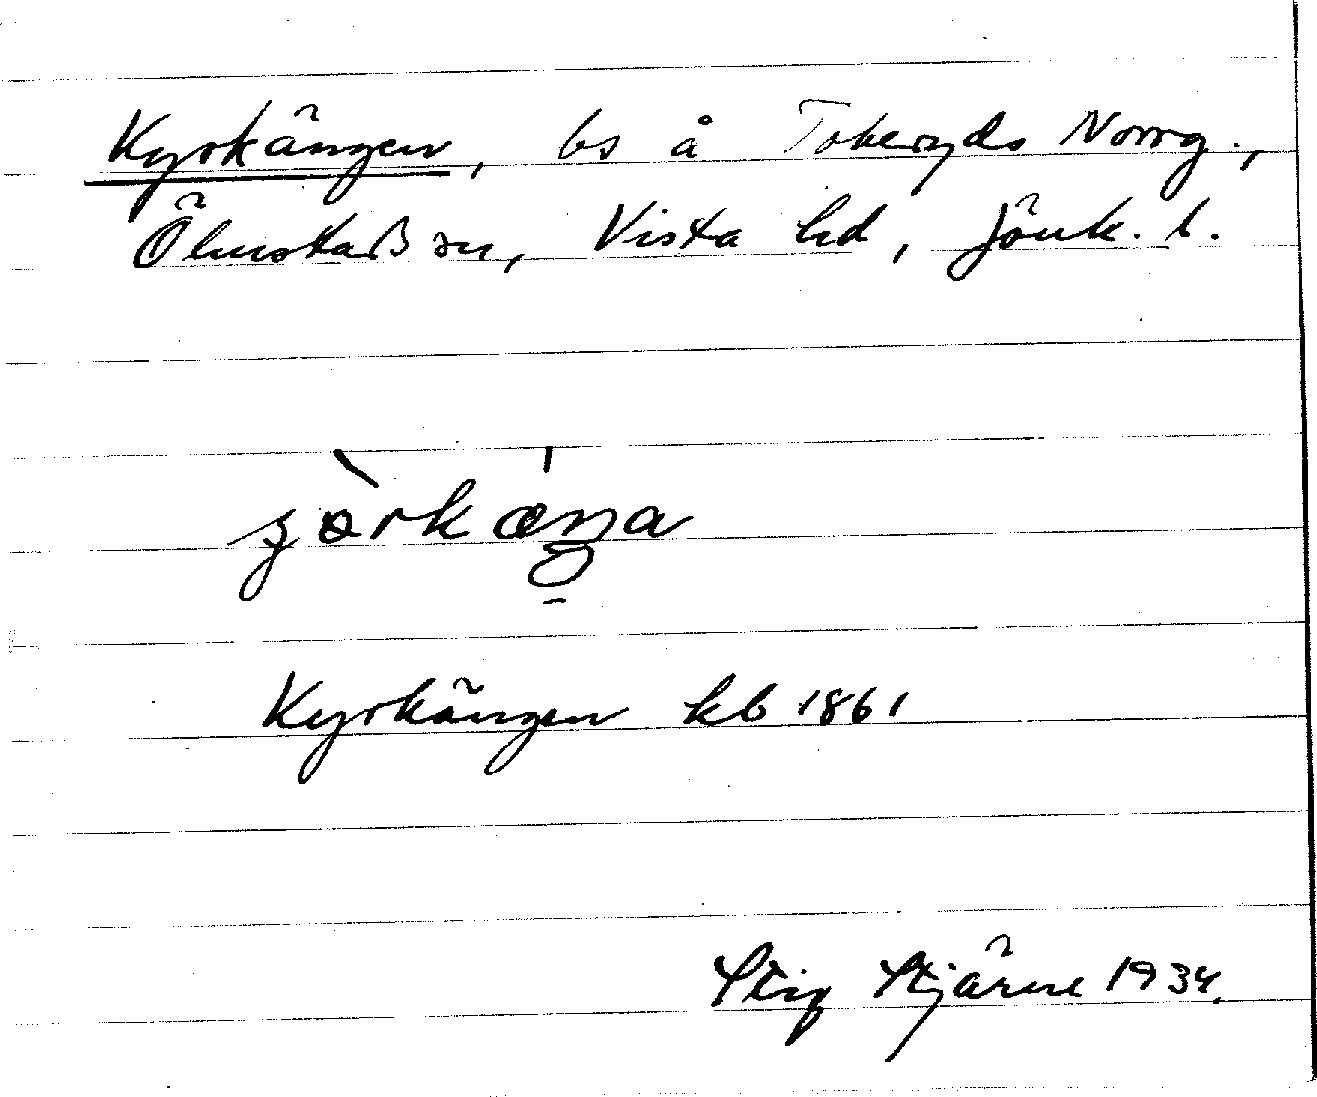 Kyrkängen, bs å Tokeryds Norrg.,
Ölmstad sn, Vista hd, Jönk. l.
Kyrkängen kb 1861
Stig Stjärne 1934.